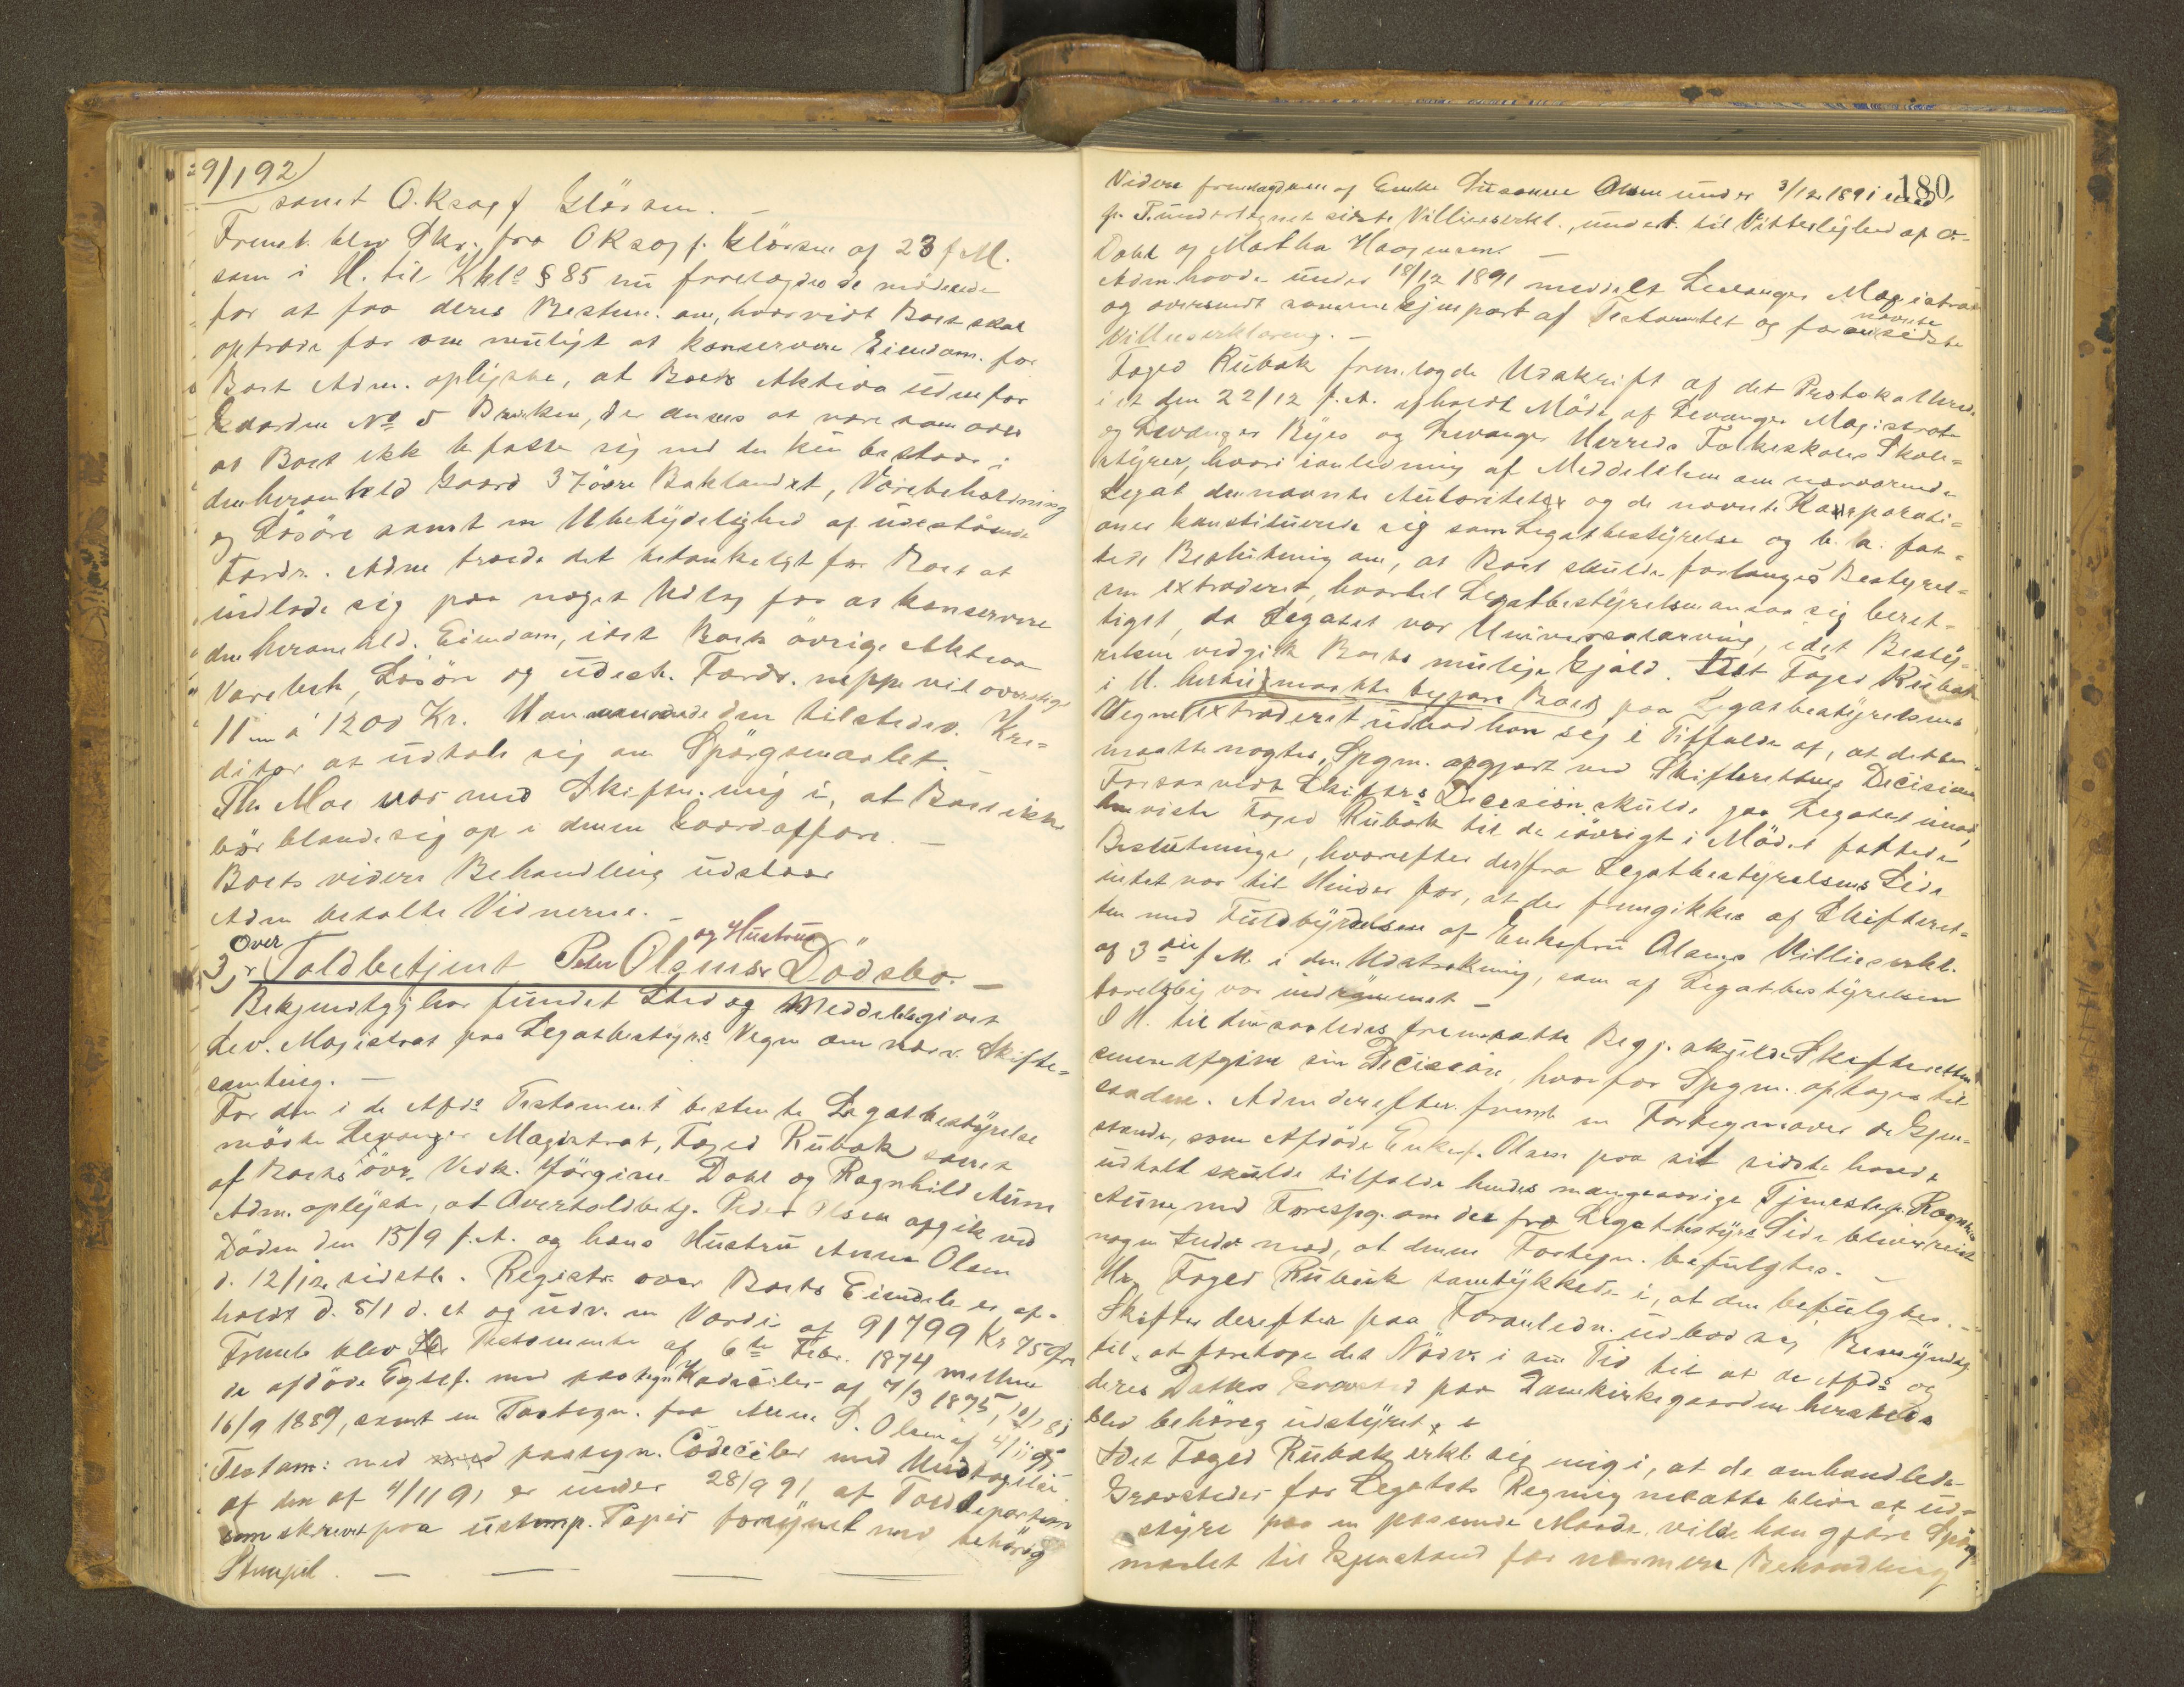 29/1 92
samt O.Ksagf. Klörsen. —
Fremt. blev Skr. fra OKsagf. Klörsen af 23 f. M.
som i H. til Kkl. § 85 nu forelagdes de mödende
for at faa deres Bestem. om, hvorvidt Boet skal
optræde for om muligt at konservere Eiendom. for
Boet Adm. oplyste, at Boets Aktiva udenfor
Gaarden No 5 Brinken, der ansees at være
at Boet ikke befatte sig med den kun bestaar i
den heromhld Gaard 37 övre Baklandet, Varebeholdning
og Lösöre samt en Ubetydelighed af udestaaende
Fordr. Adm troede det betænkeligt for Boet at
indlade sig paa noget Udlæg for at konservere
den heromhld. Eiendom, idet Boets övrige Aktiva
Varebeh, Lösöre og udest. Fordr. neppe vil overstige
11 à 1200 Kr. Han den tilstedev. Kre=
ditor at udtale sig om Spörgsmaalet. —
Th. Moe var med Skiften. enig i, at Boet ikke
bör blande sig op i denne Gaardaffære. —
Boets videre Behandling udstaar
Adm betalte Vidnerne. —
og Hustrus
Over
3, Toldbetjent Peter Olsens Dödsbo. —
Bekjendtgj har fundet Sted og Meddelelse givet
Lev. Magistrat paa Legatbestyr.s Vegne om nærv. Skifte=
samling. —
For den i de Afd.s Testament bestemte Legatbestyrelse
mödte Levanger Magistrat, Foged Rubek samt
af Boets övr. Vedk. Jörgine Dahl og Ragnhild Aune
Adm. oplyste, at Overtoldbetj. Peder Olsen afgik ved
Döden den 15/9 f. A. og hans Hustru Anna Olsen
d. 12/12 sidstl. Registr. over Boets Eiendele er af=
holdt d. 8/1 d. A og udv. en Værdi af 91799 Kr 75 Öre
Fremt. blev Testamente af 6te Febr. 1874 mellem
de afdöde Egtef. med paategn. Kodiciler af 7/3 1875,
16/9 1889, samt en Paategn. fra Anne S. Olsen af 4/11 91
Testam: med paategn. Codeciler med Undtagelse
af den af 4/11 91 er under 28/9 91 af
som skrevet paa ustemp. Papir forsynet med behörig
Stempel. — — — —
180
Videre fremlagdes en af Enke Susanne Olsen under 3/12 1891 med
f. P. undertegnet sidste Villieserkl., undert. til Vitterlighed af O.
Dahl og Martha Haagensen. —
Adm havde under 18/12 1891 meddelt Levanger Magistrat
og oversendt samme Gjenpart af Testamentet og foran
nævnte
sidste
Villieserklæring. —
Foged Rubek fremlagde Udskrift af det Protokollerede
i et den 22/12 f. A. afholdt Möde af Levanger Magistrat
og Levanger Byes og Levanger Herreds Folkeskoles Skole=
styrer, hvori i anledning af Meddelelsen om nærværende
Legat de nævnte Autoriteter og de nævnte Korporati=
oner konstituerede sig som Legatbestyrelse og b. a. fat=
tede Beslutning om, at Boet skulde forlanges Bestyrel=
sen extraderet, hvortil Legatbestyrelsen ansaa sig beret=
tiget, da Legatet var Universalarving, idet Besty=
relsen vedgik Boets mulige Gjæld. Idet Foged Rubek
i H. hertil maatte begjære Boet paa Legatbestyrelsens
Vegne extraderet udbad han sig i Tilfælde af, at dette
maatte nægtes, Spgm. afgjort ved Skifterettens Decision
Forsaavidt Skifter.s Decision skulde gaa Legatet imod,
henviste Foged Rubek til de iövrigt i Mödet fattede
Beslutninger, hvorefter der fra Legatbestyrelsens Side
intet var til Hinder for, at der fremgikkes af Skifteret=
ten med Fuldbyrdelsen af Enkefru Olsens Villieserkl.
af 3die f. M. i den Udstrækning, som af Legatbestyrelsen
forelöbig var indrömmet —
I H. til den saaledes fremsatte Begj. skulde Skifteretten
senere afgive sin Decision, hvorfor Spgm. optages til
saadan. Adm derefter fremt en Fortegn over de Gjen=
stande, som Afdöde Enkef. Olsen paa sit sidste havde
udtalt skulde tilfalde hendes mangeaarige Tjenestep. Ragnhild
Aune, med Forespg. om der fra Legatbestyr.s Side bliver reist
nogen Indv. mod, at denne Fortegn. befulgtes. —
Hr. Foged Rubek samtykkede i, at den befulgtes. —
Skiften derefter paa Foranledn. udbad sig Bemyndig.
til at foretage det Nödv. i sin Tid til at de Afd.s og
deres Datters Gravsted paa Domkirkegaarden hersteds
blev behörig udstyret
Idet Foged Rubek erkl. sig enig i, at de omhandlede
Gravsteder for Legatets Regning maatte blive at ud=
styre paa en passende Maade, vilde han gjöre Spörgs
maalet til Gjenstand for nærmere Behandling